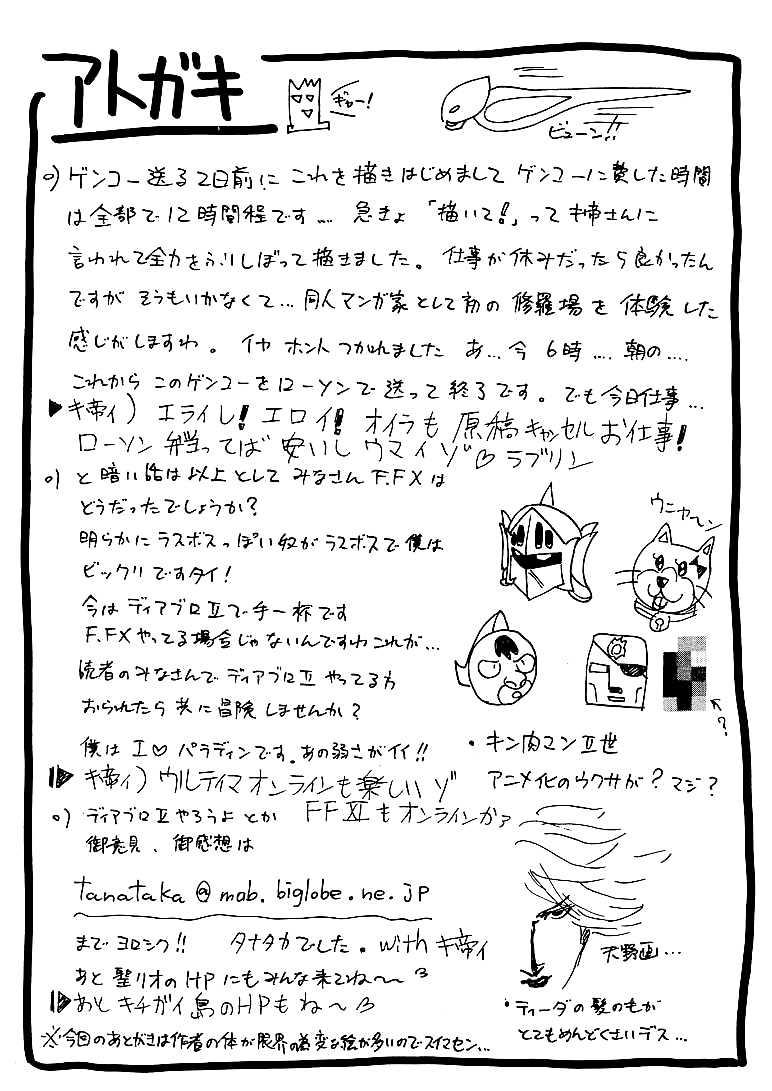 アトガキ
ギャー!
ビューン!!
o) ゲンコー送る2日前に これを描きはじめまして ゲンコーに費した時間
は全部で12時間程です.... 急きょ 「描いて!」って キ帝さんに
言われて全力をふりしぼって描きました。 仕事が休みだったら良かったん
ですが そうもいかなくて... 同人マンガ家として初の 修羅場を 体験した
感じがしますわ。 イヤ ホント つかれました あ... 今 6時 .... 朝の ....
これから このゲンコーをローソンで送って終了です。 でも今日仕事 ...
▶キ帝ィ) エライし! エロイ! オイラも 原稿キャンセルお仕事!
ローソン 弁当ってば 安いし ウマイゾ♡ ラブリン
o) と 暗い話は以上として みなさん F.FXは
どうだったでしょうか?
明らかに ラスボスっぽい奴が ラスボスで 僕は
ビックリですタイ!
今は ディアブロⅡで手一杯です
F.FXやってる場合じゃないんですわこれが...
読者のみなさんで ディアブロⅡ やってる方
おられたら 共に冒険しませんか?
僕は I♡ パラディンです。あの弱さがイイ!!
▶キ帝ィ) ウルティマオンラインも楽しいゾ
o) ディアブロⅡやろうよ とか FFⅪもオンラインか?
御意見、御感想は
tanataka@mob.biglobe.ne.jp
まで ヨロシク!! タナタカでした。with キ帝ィ
あと 聖リオのHPにもみんな来てね〜〜
▶あと キチガイ島のHPもね〜
※今回のあとがきは作者の体が限界の為変な絵が多いのでスイマセン...
ウニャ〜ン
?
・キン肉マンⅡ世
アニメ化のウワサが? マジ?
天野画...
・ティーダの髪のもが
とてもめんどくさいデス...